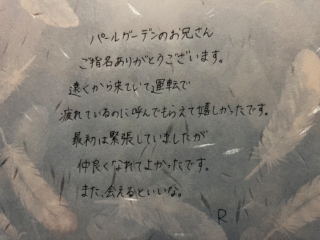 パールガーデンのお兄さん
ご指名ありがとうございます。
遠くから来ていて運転で
疲れているのに呼んでもらえて嬉しかったです。
最初は緊張していましたが
仲良くなれてよかったです。
また、会えるといいな。
R